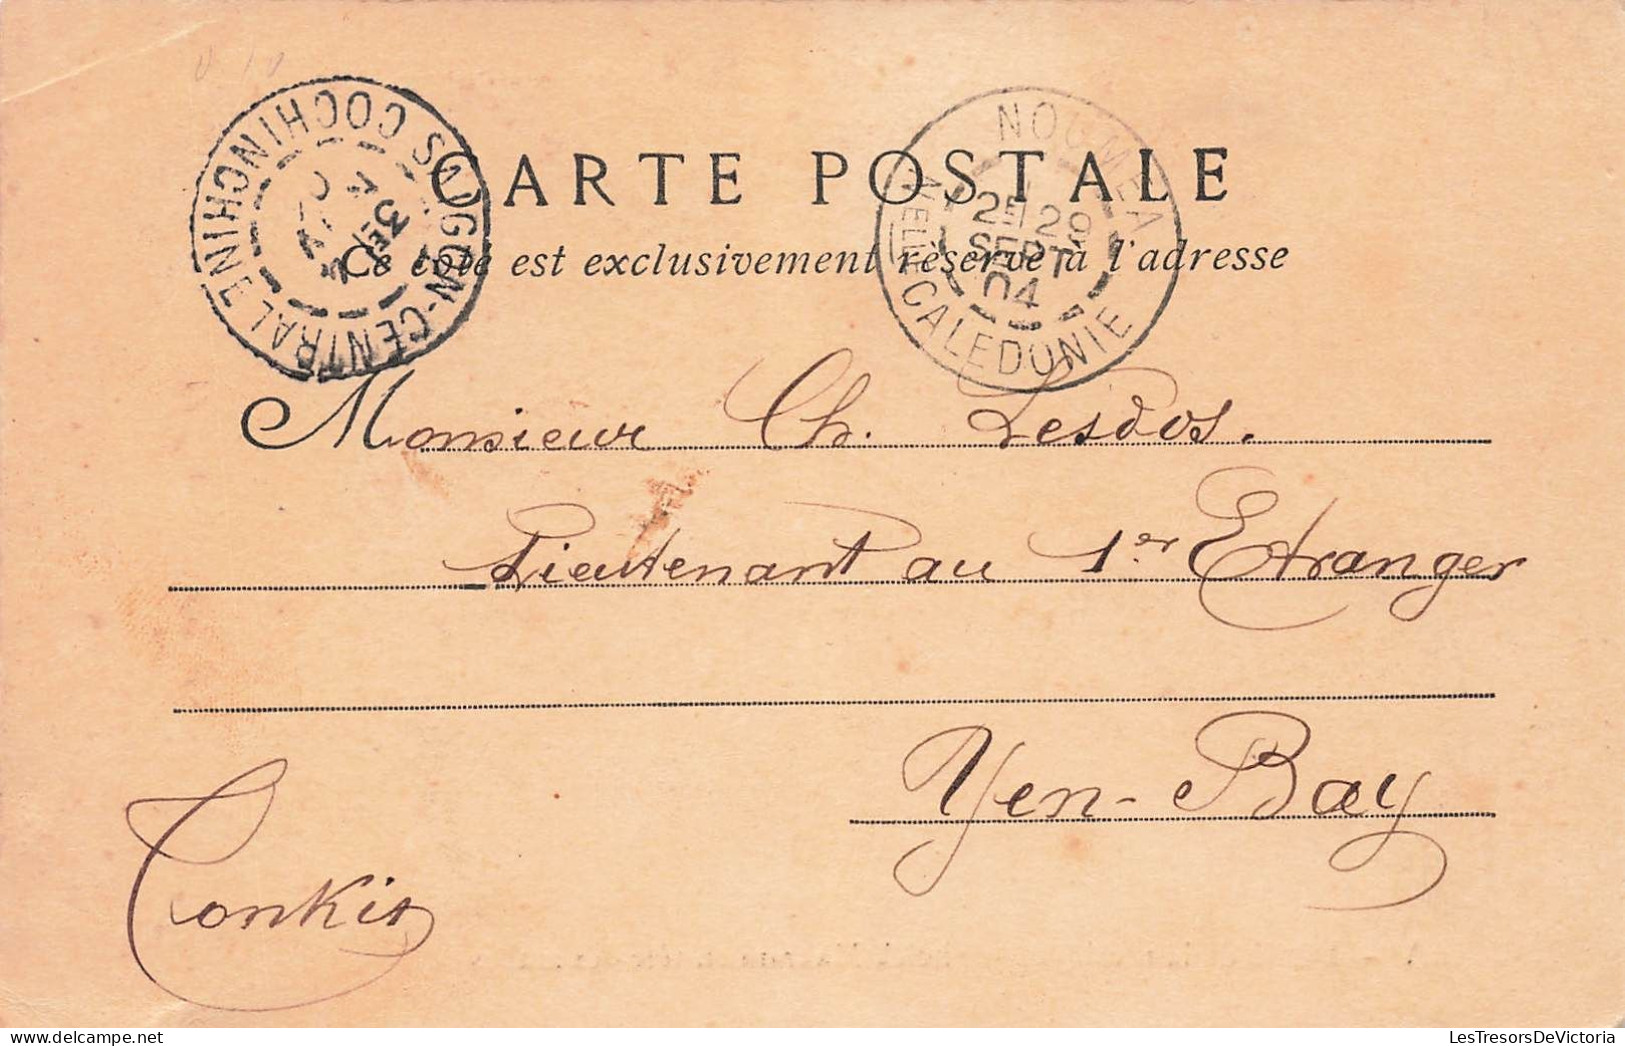 SAIGON-CENTRAL
COCHINCHINE
3E
NOUMEA
2E 29
SEPT
04
NELLE CALEDONIE
CARTE POSTALE
Ce côté est exclusivement réservé à l'adresse
Monsieur Ch. Lesdos.
Lieutenant au 1er Etranger
Yen-Bay
Tonkin
LesTresorsDeVictoria.com